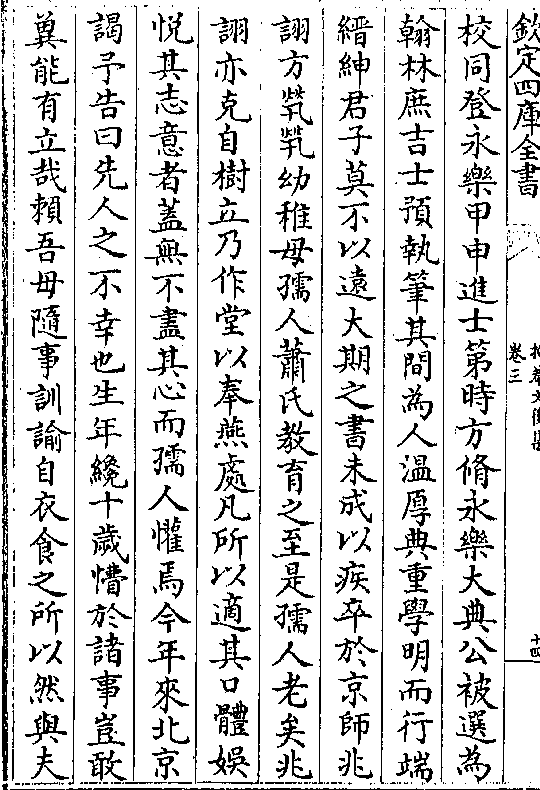 欽定四庫全書
卷三
十四
校同登永樂甲申進士第時方脩永樂大典公被選為
翰林庶吉士預執筆其間為人溫厚典重學明而行端
縉紳君子莫不以遠大期之書未成以疾卒於京師兆
詡方煢煢幼稚母孺人蕭氏教育之至是孺人老矣兆
詡亦克自樹立乃作堂以奉燕處凡所以適其口體娛
悅其志意者蓋無不盡其心而孺人懽焉今年來北京
謁予告曰先人之不幸也生年纔十歲懵於諸事豈敢
冀能有立哉賴吾母隨事訓諭自衣食之所以然與夫